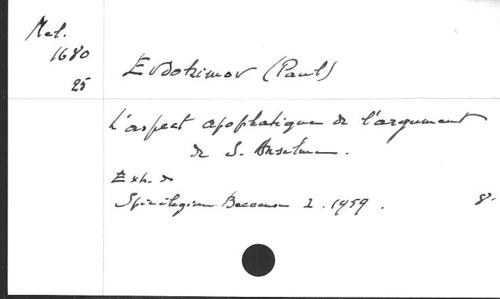 Mel.
1680
25
Evdokimov (Paul)
L'aspect apophatique de l'argument
de S. Anselme.
Extr. de
Spicilegium Beccense I. 1959. 8°